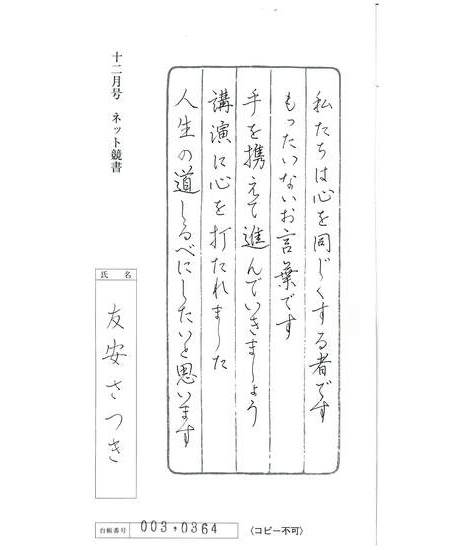 私たちは心を同じくする者です
もったいないお言葉です
手を携えて進んでいきましょう
講演に心を打たれました
人生の道しるべにしたいと思います
十二月号 ネット競書
氏名
友安さつき
台帳番号 003,0364
〈コピー不可〉